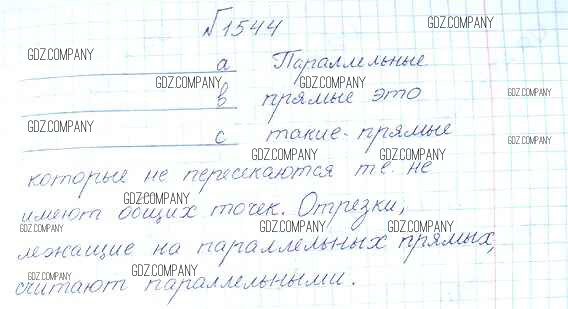 №1544
GDZ.COMPANY
GDZ.COMPANY
a Параллельные
GDZ.COMPANY GDZ.COMPANY
b прямые это GDZ.COMPANY
GDZ.COMPANY
c такие прямые GDZ.COMPANY
GDZ.COMPANY GDZ.COMPANY
которые не пересекаются те. не
GDZ.COMPANY
имеют общих точек. Отрезки,
GDZ.COMPANY GDZ.COMPANY GDZ.COMPANY
лежащие на параллельных прямых,
GDZ.COMPANY GDZ.COMPANY
считают параллельными.